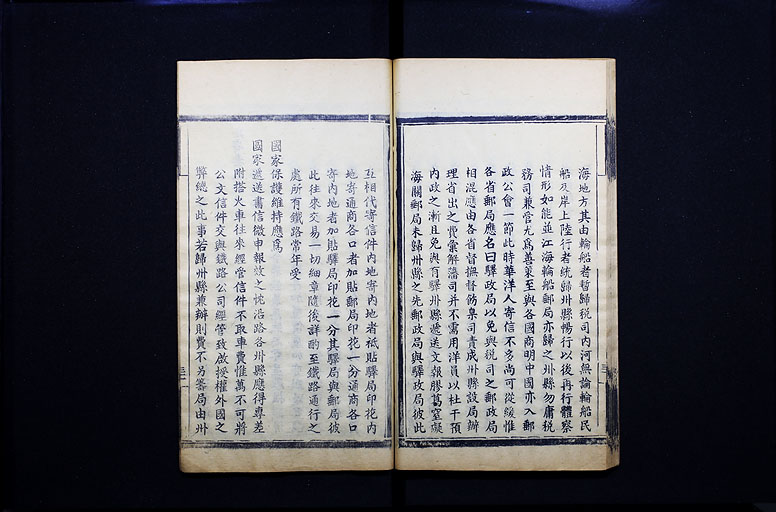 海地方其由輪船者暫歸稅司內河無論輪船民
船及岸上陸行者統歸州縣暢行以後再行體察
情形如能並江海輪船郵局亦歸之州縣勿庸稅
務司兼管尤為善策至與各國商明中國亦入郵
政公會一節此時華洋人寄信不多尚可從緩惟
各省郵局應名曰驛政局以免與稅司之郵政局
相混應由各省督撫督飭臬司責成州縣設局辦
理省出之費彙解藩司并不需用洋員以杜干預
內政之漸且免與有驛州縣遞送文報膠葛窒礙
海關郵局未歸州縣之先郵政局與驛政局彼此
互相代寄信件內地寄內地者祇貼驛局印花內
地寄通商各口者加貼郵局印花一分通商各口
寄內地者加貼驛局印花一分其驛局與郵局彼
此往來交易一切細章隨後詳酌至鐵路通行之
處所有鐵路常年受
國家保護維持應為
國家遞送書信微申報效之忱沿路各州縣應得專差
附搭火車往來經管信件不取車費惟萬不可將
公文信件交與鐵路公司經管致啟授權外國之
弊總之此事若歸州縣兼辦則費不另籌局由州